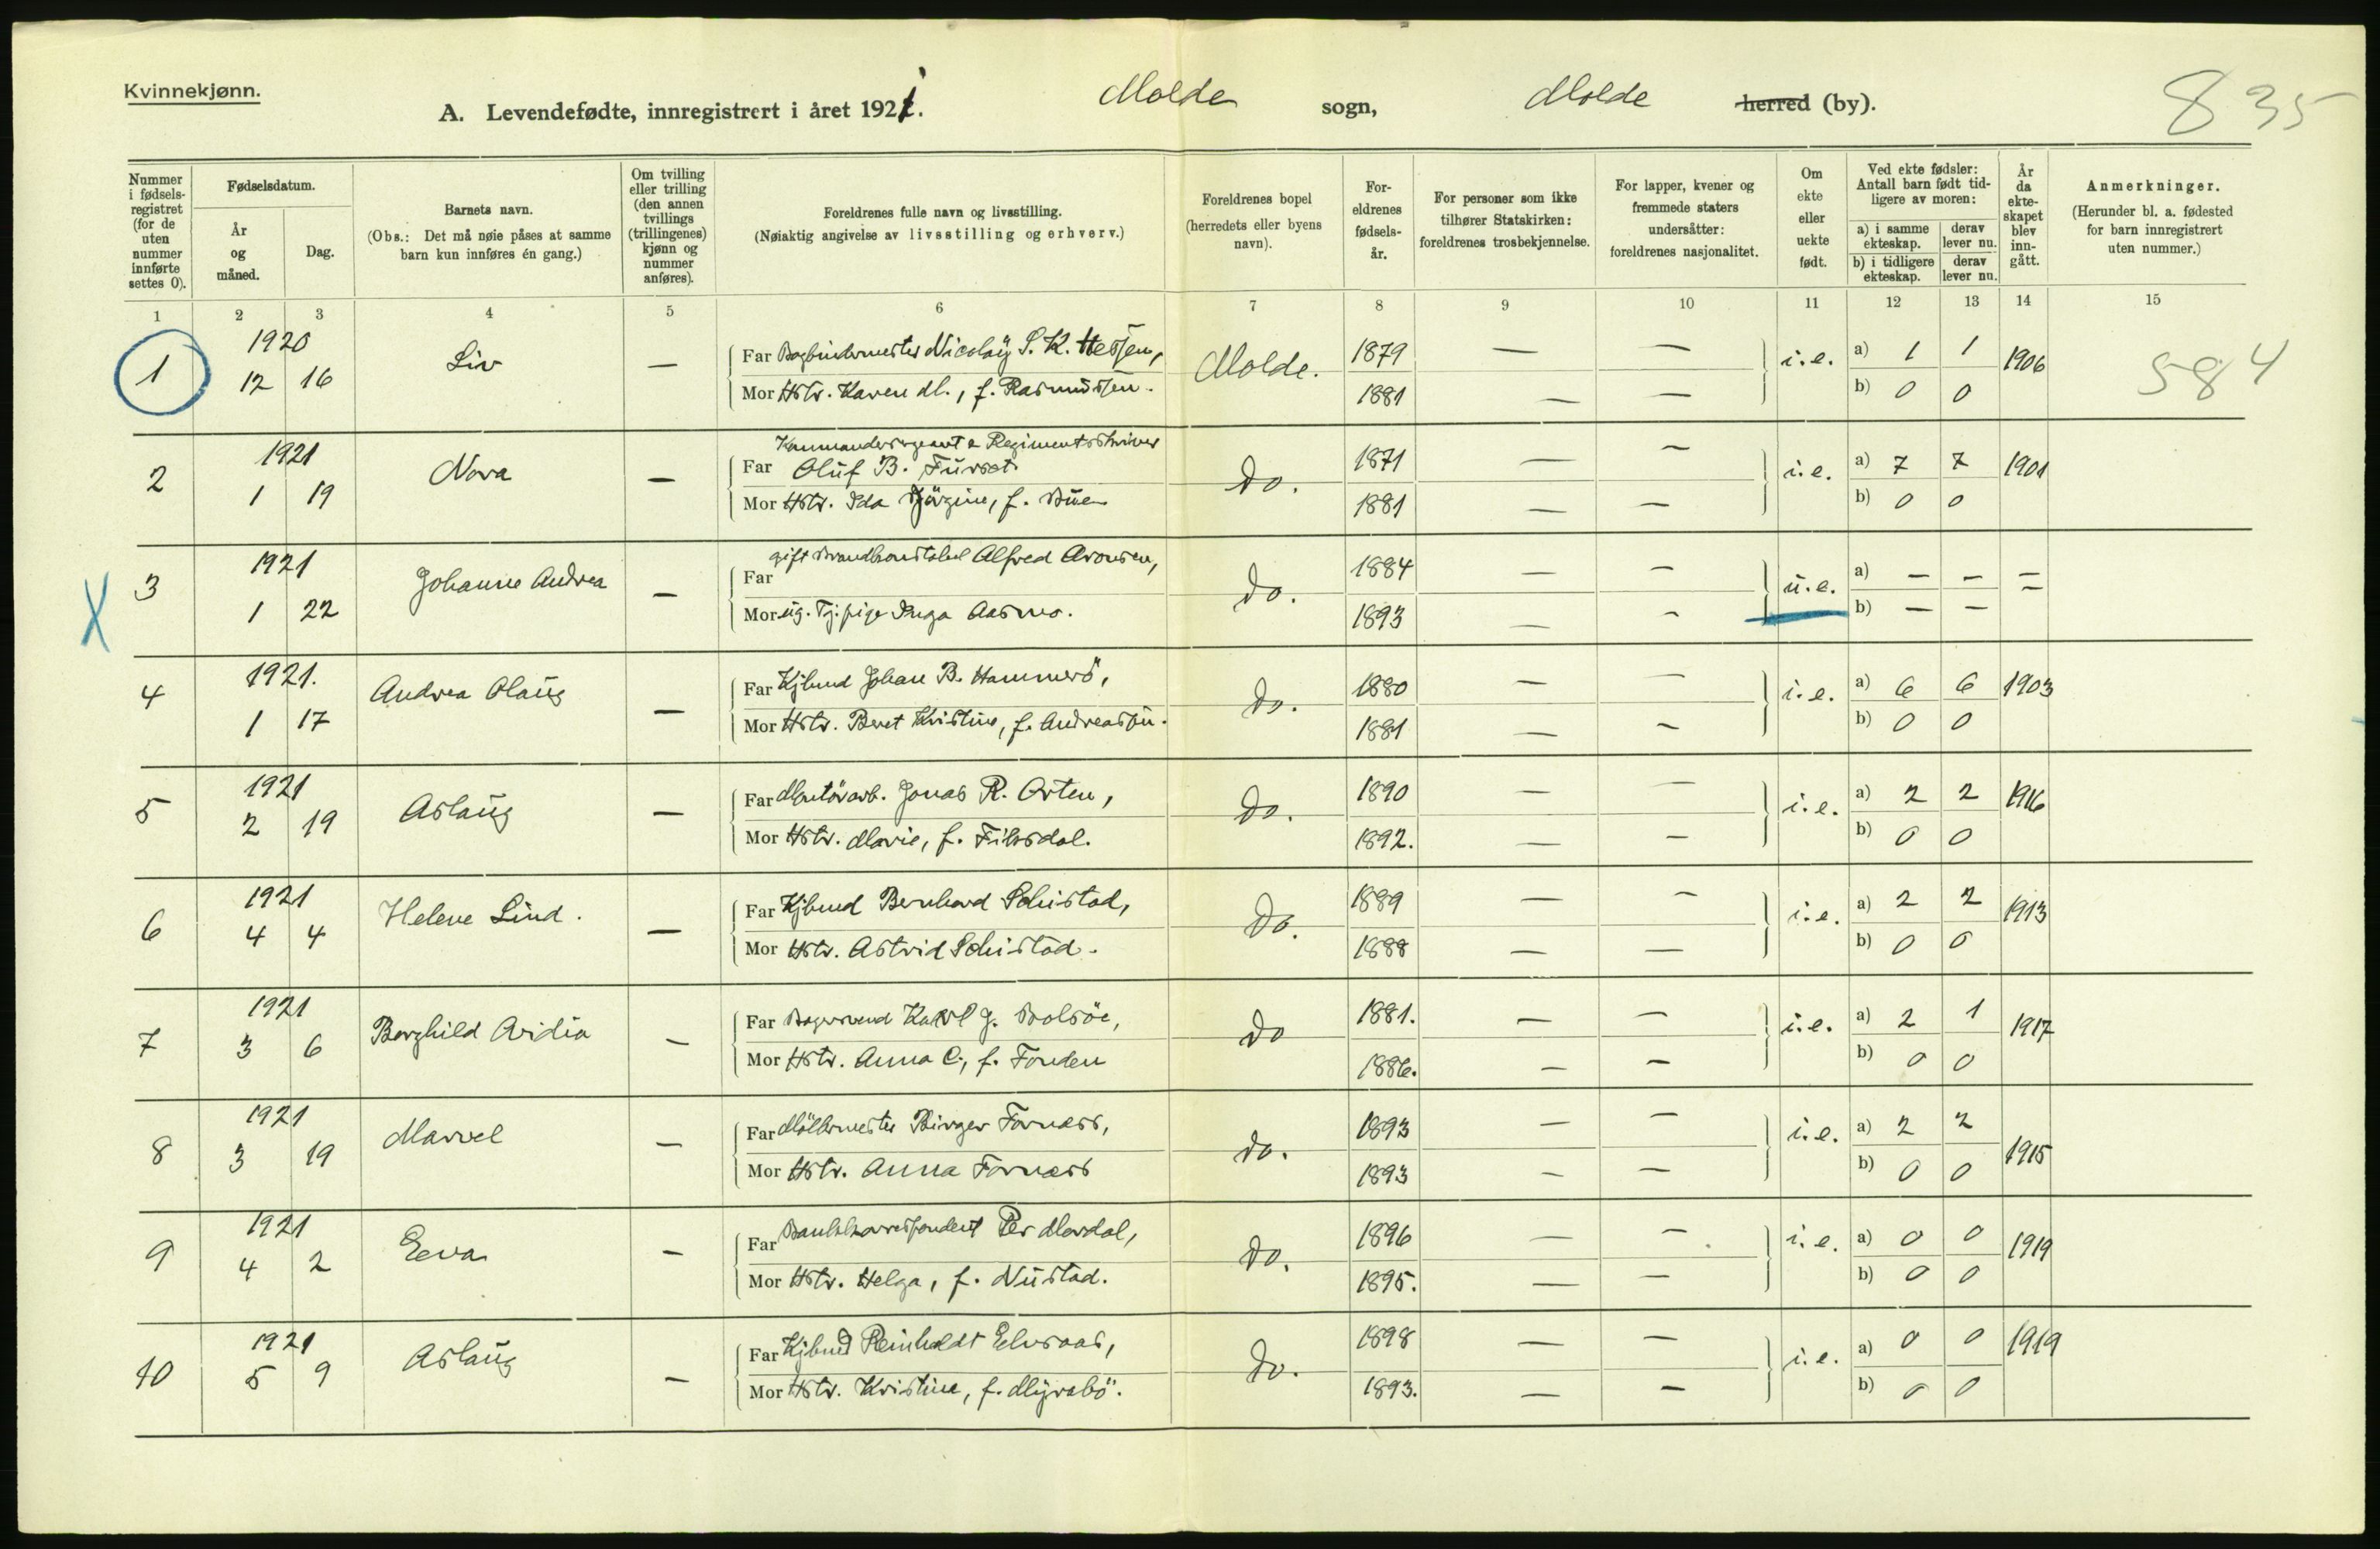 Kvinnekjønn.
A. Levendefødte, innregistrert i året 1921. Molde sogn, Molde herred (by). 835
Nummer i fødselsregistret (for de uten nummer innførte settes 0).
Fødselsdatum.
År og måned.
Dag.
Barnets navn.
(Obs.: Det må nøie påses at samme barn kun innføres én gang.)
Om tvilling eller trilling (den annen tvillings (trillingenes) kjønn og nummer anføres).
Foreldrenes fulle navn og livsstilling.
(Nøiaktig angivelse av livsstilling og erhverv.)
Foreldrenes bopel (herredets eller byens navn).
Foreldrenes fødselsår.
For personer som ikke tilhører Statskirken: foreldrenes trosbekjennelse.
For lapper, kvener og fremmede staters undersåtter: foreldrenes nasjonalitet.
Om ekte eller uekte født.
Ved ekte fødsler: Antall barn født tidligere av moren:
a) i samme ekteskap. derav lever nu.
b) i tidligere ekteskap. derav lever nu.
År da ekteskapet blev inngått.
Anmerkninger.
(Herunder bl. a. fødested for barn innregistrert uten nummer.)
1 2 3 4 5 6 7 8 9 10 11 12 13 14 15
1 1920 12 16 Liv — Far Bogbindermester Nicolaÿ S. K. Hessen, Molde. 1879 — — i.e. a) 1 1 1906 584
Mor Hstr. Karen M., f. Rasmussen. 1881 — — b) 0 0
2 1921 1 19 Nora — Kommandersergeant & Regimentsskriver
Far Oluf B. Furset Do. 1871 — — i.e. a) 7 7 1901
Mor Hstr. Ida Jörgine, f. Bue 1881 — — b) 0 0
X 3 1921 1 22 Johanne Andrea — Far gift Brandkonstabel Alfred Aronsen, Do. 1884 — — u.e. a) — — —
Mor ug. Tj.pige Inga Aasmo. 1893 — — b) — — —
4 1921. 1 17 Andrea Olaug — Far Kjbmd Johan B. Hammerö, Do. 1880 — — i.e. a) 6 6 1903
Mor Hstr. Beret Kristine, f. Andreassen. 1881 — — b) 0 0
5 1921 2 19 Aslaug — Far Jonas R. Orten, Do. 1890 — — i.e. a) 2 2 1916
Mor Hstr. Marie, f. Fiksdal. 1892. — — b) 0 0
6 1921 4 4 Helene Lind. — Far Kjbmd Bernhard Schistad, Do. 1889 — — i.e. a) 2 2 1913
Mor Hstr. Astrid Schistad. 1888 — — b) 0 0
7 1921 3 6 Borghild Avidia — Far Bagersvend Karl J. Bolsöe, Do 1881. — — i.e. a) 2 1 1917
Mor Hstr. Anna C., f. Fonden 1886. — — b) 0 0
8 1921 3 19 Marvel — Far Möllermester Birger Fornæss, Do. 1893 — — i.e. a) 2 2 1915
Mor Hstr. Anna Fornæss 1893 — — b) 0 0
9 1921 4 2 Eeva — Far Bankkorrespondent Per Mordal, Do. 1896 — — i.e. a) 0 0 1919
Mor Hstr. Helga, f. Nustad. 1895. — — b) 0 0
10 1921 5 9 Aslaug — Far Kjbmd Reinholdt Elvsaas, Do. 1898 — — i.e. a) 0 0 1919
Mor Hstr. Kristine, f. Myrabö. 1893. — — b) 0 0